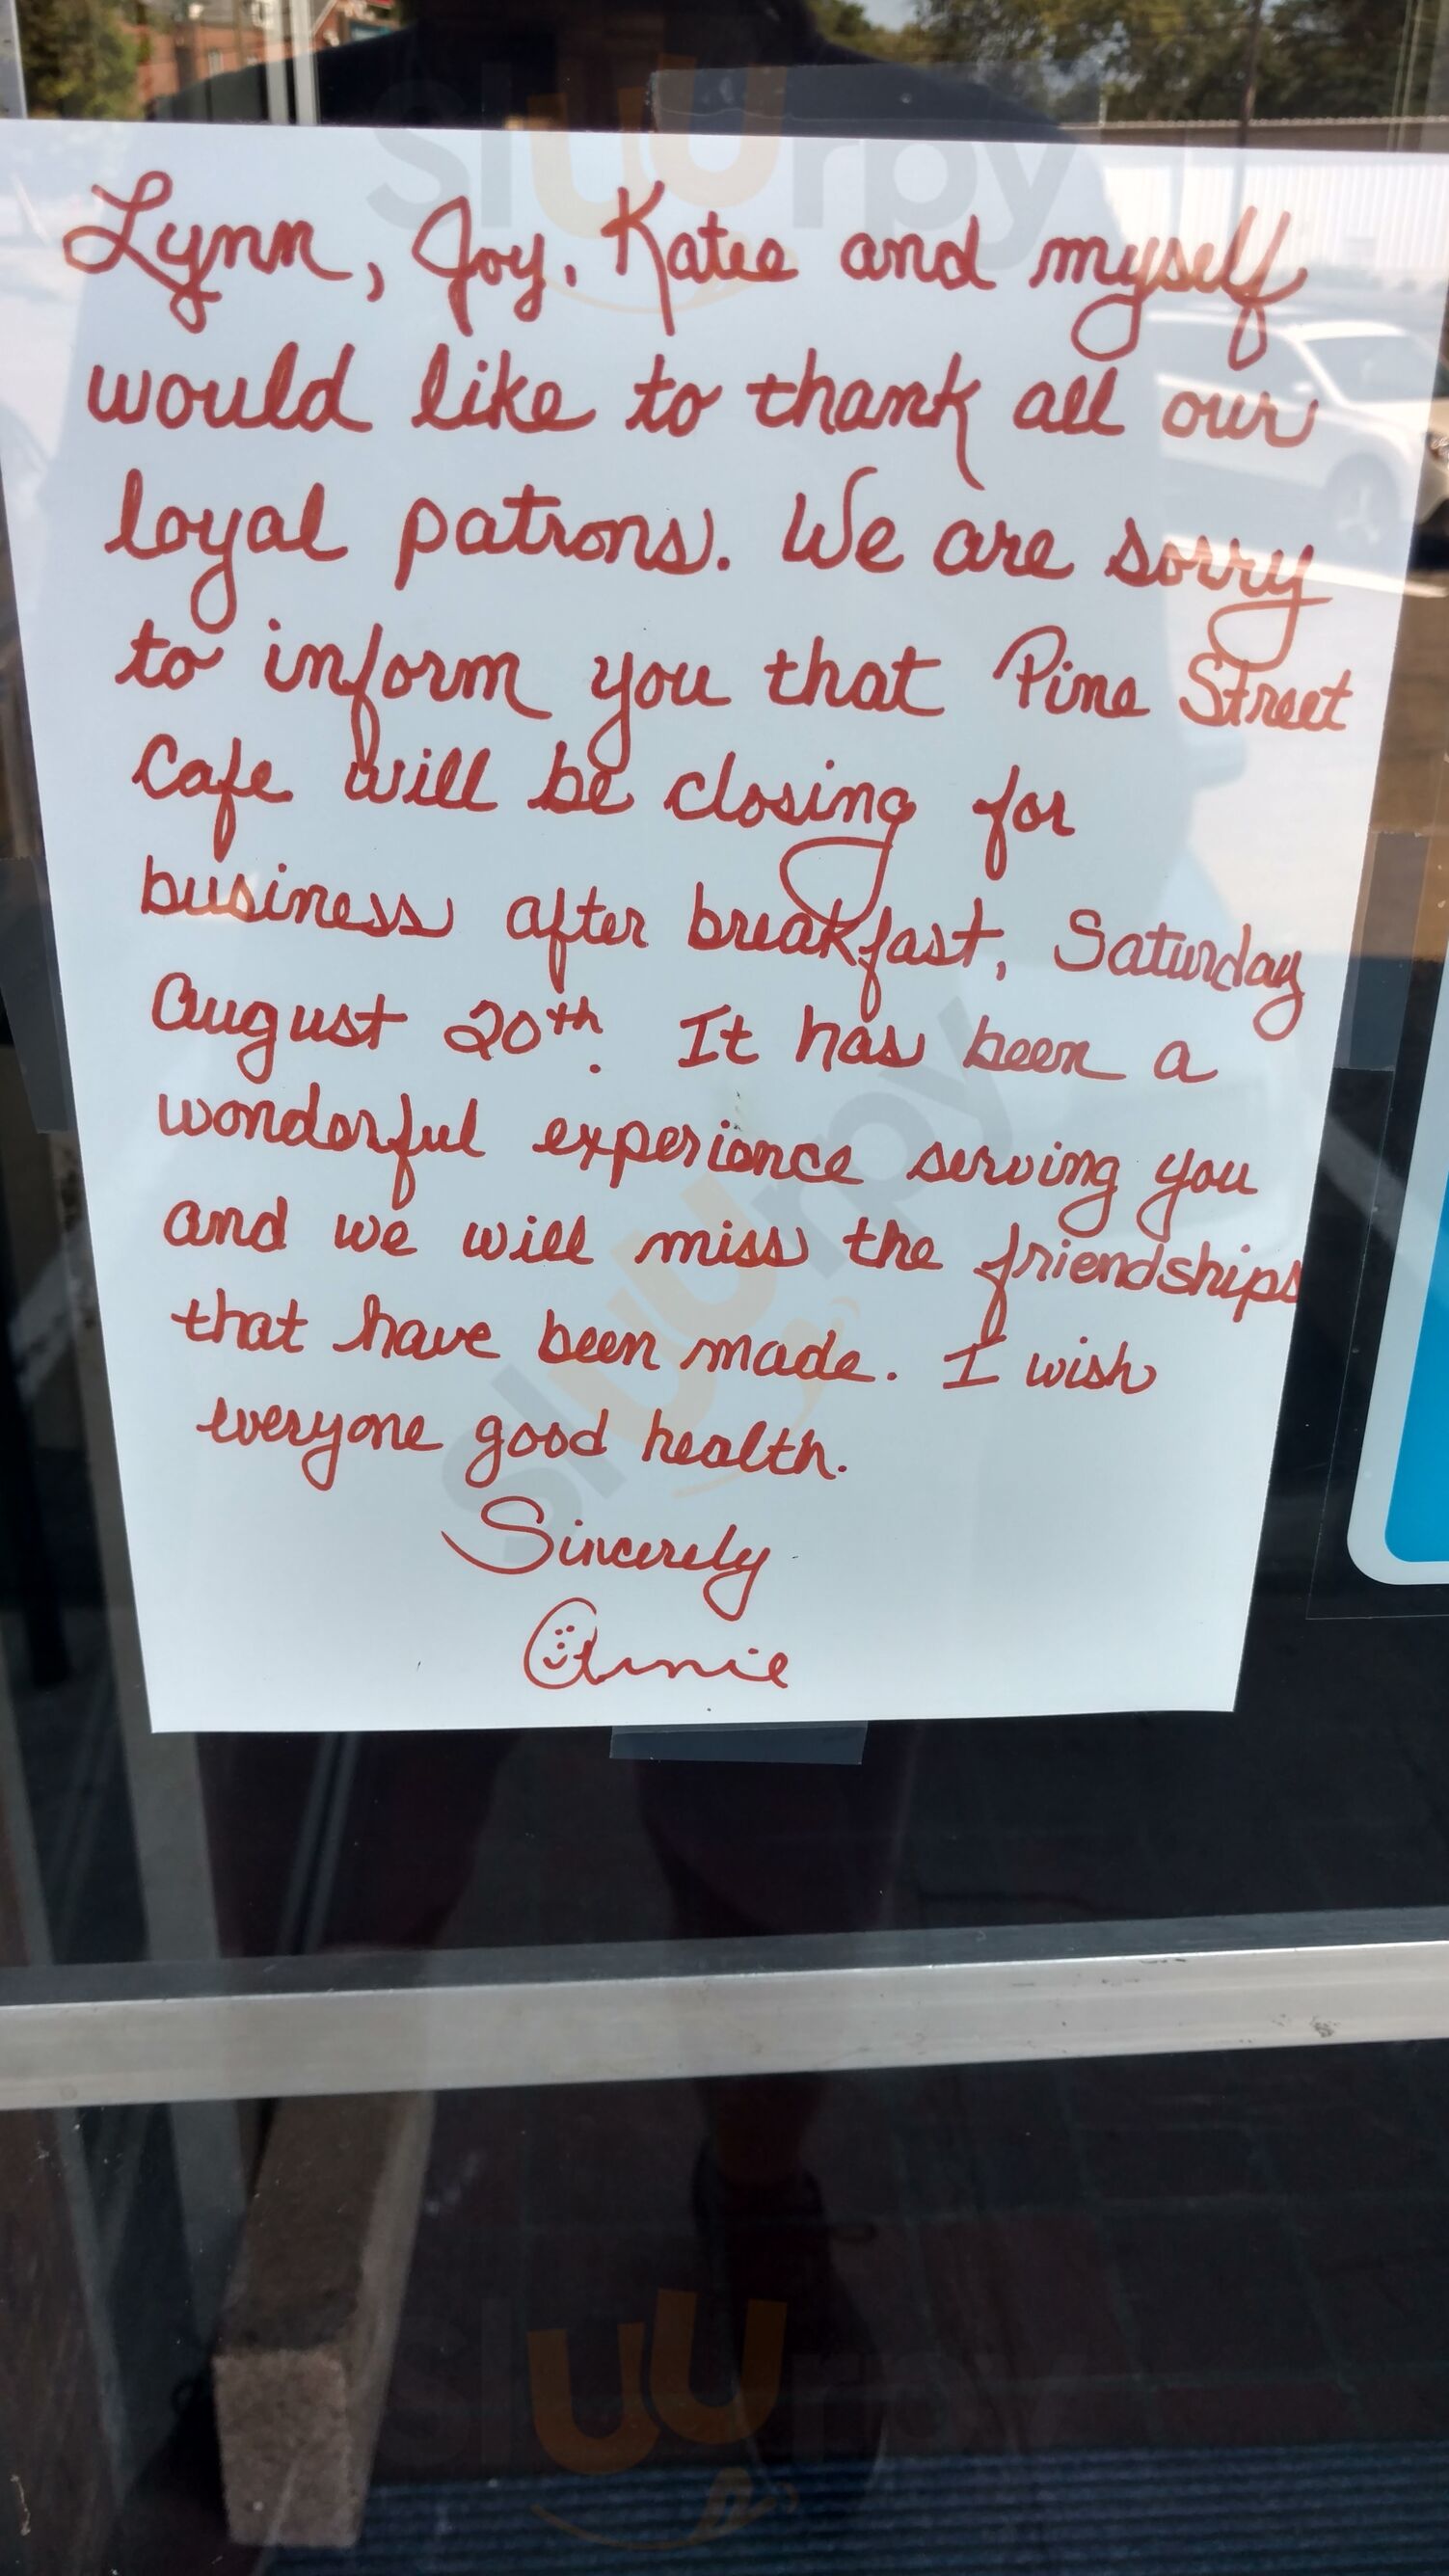 Lynn, Joy, Katee and myself
would like to thank all our
loyal patrons. We are sorry
to inform you that Pine Street
Cafe will be closing for
business after breakfast, Saturday
August 20th. It has been a
wonderful experience serving you
and we will miss the friendships
that have been made. I wish
everyone good health.
Sincerely
Arnie
sluurpy
sluurpy
sluurpy